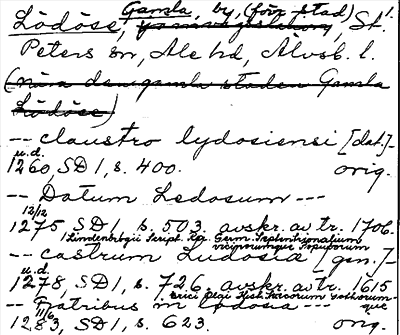 Lödöse, Gamla, by, (förr stad), St.
Peters sn, Ale hd, Älvsb. l.
(nära den gamla staden Gamla
Lödöse)
-- claustro lydosiensi [dat.]-
u.d.
1260, SD 1, s. 400. orig.
-- Datum Ledosum ---
12/12
1275 SD 1, s. 503. avskr. av tr. 1706.
Lindenbrogii Script. Rer. Germ. Septentrionalium
vicinorumque Populorum
-- castrum Ludosia [gen.]-
u.d.
1278, SD 1, s. 726. avskr. av tr. 1615
Erici Olai Hist. Svecorum Gothorum-
que
-- Fratribus in Lodosia --
11/6
1283, SD 1, s. 623. orig.